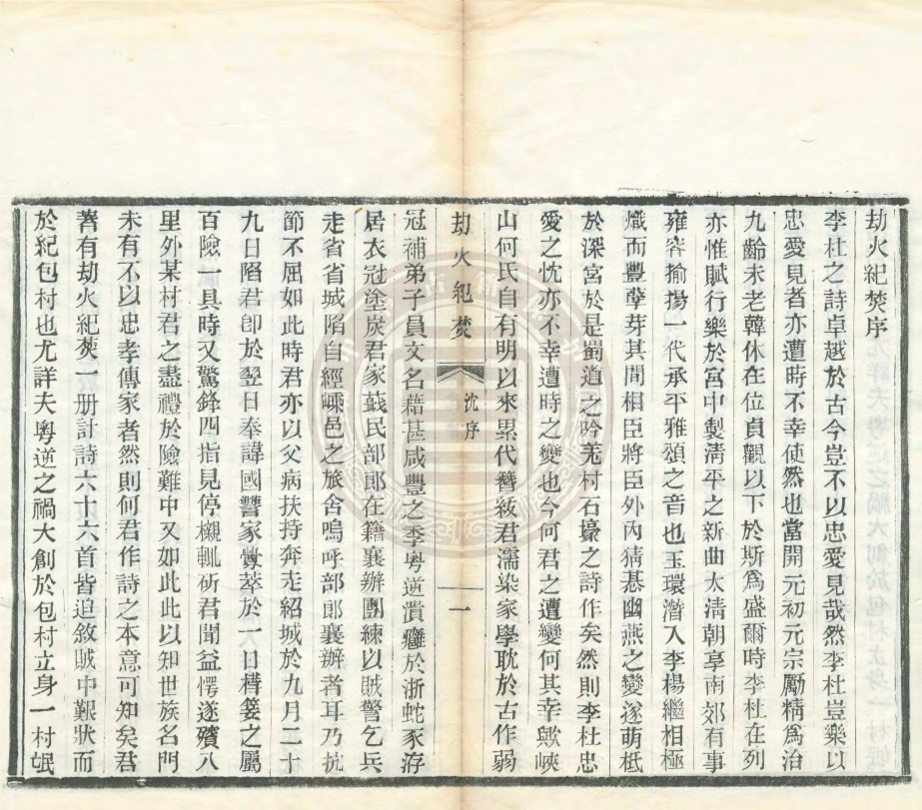 劫火紀焚序
李杜之詩卓越於古今豈不以忠愛見哉然李杜豈樂以
忠愛見者亦遭時不幸使然也當開元初元宗勵精爲治
九齡未老韓休在位貞觀以下於斯爲盛爾時李杜在列
亦惟賦行樂於宮中製清平之新曲太清朝享南郊有事
雍容揄揚一代承平雅頌之音也玉環潛入李楊繼相極
熾而豐孽芽其間相臣將臣外內猜惎幽燕之變遂萌柢
於深宮於是蜀道之吟羌村石壕之詩作矣然則李杜忠
愛之忱亦不幸遭時之變也今何君之遭變何其幸歟峽
山何氏自有明以來累代簪紱君濡染家學耽於古作弱
劫火紀焚
沈序
一
冠補弟子員文名藉甚咸豐之季粵逆潰癰於浙蛇豕荐
居衣冠塗炭君家蓺民部郎在籍襄辦團練以賊警乞兵
走省省城陷自經嵊邑之旅舍嗚呼部郎襄辦者耳乃抗
節不屈如此時君亦以父病扶持奔走紹城於九月二十
九日陷君卽於翌日奉諱國讐家釁萃於一日槥窆之屬
百險一具時又驚鋒四指見停櫬輒斫君聞益愕遂殯八
里外某村君之盡禮於險難中又如此此以知世族名門
未有不以忠孝傳家者然則何君作詩之本意可知矣君
著有劫火紀焚一册計詩六十六首皆追敘賊中艱狀而
於紀包村也尤詳夫粵逆之禍大創於包村立身一村氓